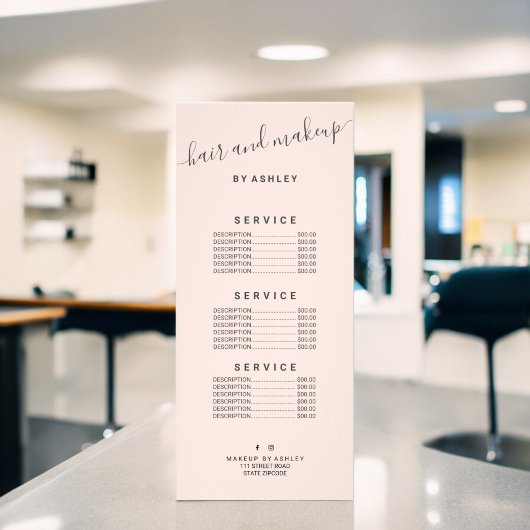 hair and makeup
BY ASHLEY
SERVICE
DESCRIPTION........................ $00.00
DESCRIPTION........................ $00.00
DESCRIPTION........................ $00.00
DESCRIPTION........................ $00.00
DESCRIPTION........................ $00.00
DESCRIPTION........................ $00.00
SERVICE
DESCRIPTION........................ $00.00
DESCRIPTION........................ $00.00
DESCRIPTION........................ $00.00
DESCRIPTION........................ $00.00
DESCRIPTION........................ $00.00
DESCRIPTION........................ $00.00
SERVICE
DESCRIPTION........................ $00.00
DESCRIPTION........................ $00.00
DESCRIPTION........................ $00.00
DESCRIPTION........................ $00.00
DESCRIPTION........................ $00.00
DESCRIPTION........................ $00.00
MAKEUP BY ASHLEY
111 STREET ROAD
STATE ZIPCODE